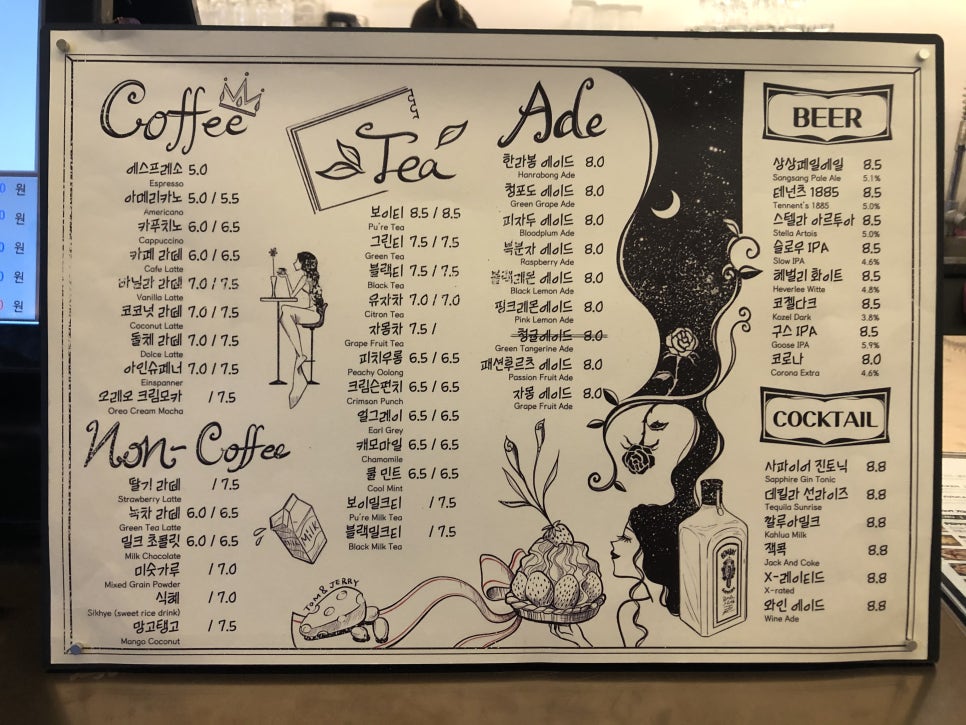 Coffee
에스프레소 5.0
Espresso
아메리카노 5.0 / 5.5
Americano
카푸치노 6.0 / 6.5
Cappuccino
카페 라떼 6.0 / 6.5
Cafe Latte
바닐라 라떼 7.0 / 7.5
Vanilla Latte
코코넛 라떼 7.0 / 7.5
Coconut Latte
돌체 라떼 7.0 / 7.5
Dolce Latte
아인슈페너 7.0 / 7.5
Einspanner
오레오 크림모카 / 7.5
Oreo Cream Mocha
Non-Coffee
딸기 라떼 / 7.5
Strawberry Latte
녹차 라떼 6.0 / 6.5
Green Tea Latte
밀크 초콜릿 6.0 / 6.5
Milk Chocolate
미숫가루 / 7.0
Mixed Grain Powder
식혜 / 7.0
Sikhye (sweet rice drink)
망고탱고 / 7.5
Mango Coconut
Milk
Tea
보이티 8.5 / 8.5
Pu're Tea
그린티 7.5 / 7.5
Green Tea
블랙티 7.5 / 7.5
Black Tea
유자차 7.0 / 7.0
Citron Tea
자몽차 7.5 /
Grape Fruit Tea
피치우롱 6.5 / 6.5
Peachy Oolong
크림슨펀치 6.5 / 6.5
Crimson Punch
얼그레이 6.5 / 6.5
Earl Grey
캐모마일 6.5 / 6.5
Chamomile
쿨 민트 6.5 / 6.5
Cool Mint
보이밀크티 / 7.5
Pu're Milk Tea
블랙밀크티 / 7.5
Black Milk Tea
TOM & JERRY
Ade
한라봉 에이드 8.0
Hanrabong Ade
청포도 에이드 8.0
Green Grape Ade
피자두 에이드 8.0
Bloodplum Ade
복분자 에이드 8.0
Raspberry Ade
블랙레몬 에이드 8.0
Black Lemon Ade
핑크레몬에이드 8.0
Pink Lemon Ade
청귤에이드 8.0
Green Tangerine Ade
패션후르츠 에이드 8.0
Passion Fruit Ade
자몽 에이드 8.0
Grape Fruit Ade
BEER
상상페일에일 8.5
Sangsang Pale Ale 5.1%
테넌츠 1885 8.5
Tennent's 1885 5.0%
스텔라 아르투아 8.5
Stella Artois 5.0%
슬로우 IPA 8.5
Slow IPA 4.6%
헤벌리 화이트 8.5
Heverlee Witte 4.8%
코젤다크 8.5
Kozel Dark 3.8%
구스 IPA 8.5
Goose IPA 5.9%
코로나 8.0
Corona Extra 4.6%
COCKTAIL
사파이어 진토닉 8.8
Sapphire Gin Tonic
데킬라 선라이즈 8.8
Tequila Sunrise
깔루아밀크 8.8
Kahlua Milk
잭콕 8.8
Jack And Coke
X-레이티드 8.8
X-rated
와인 에이드 8.8
Wine Ade
0 원
0 원
0 원
0 원